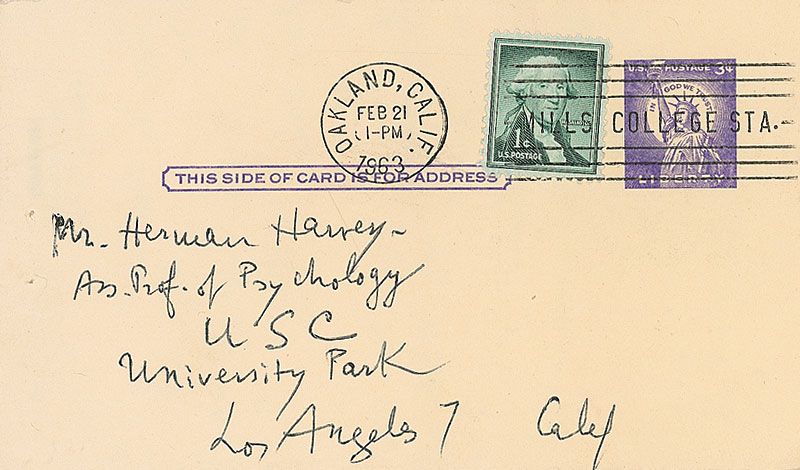 OAKLAND, CALIF.
FEB 21
1-PM
1963
MILLS COLLEGE STA.
1¢
U.S. POSTAGE
U.S. POSTAGE 3¢
IN GOD WE TRUST
LIBERTY
THIS SIDE OF CARD IS FOR ADDRESS
Mr. Herman Harvey
Ass. Prof. of Psychology
USC
University Park
Los Angeles 7 Calif